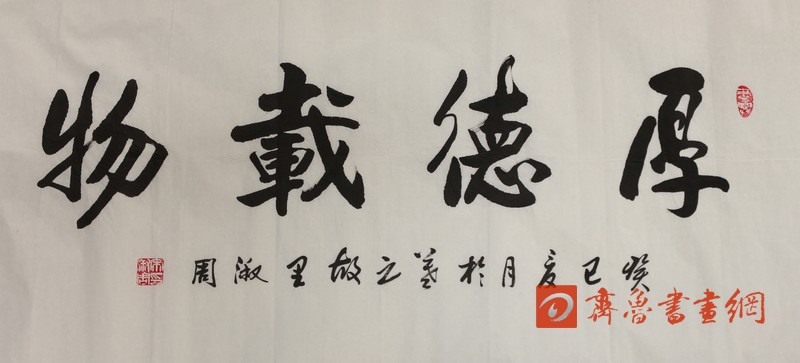 厚德載物
癸巳夏月於羲之故里 淑周
齊魯書畫網